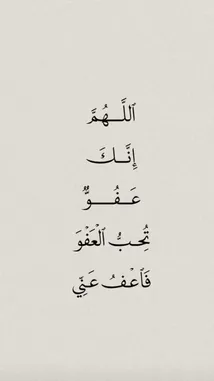 ٱللَّـــهُمَّ
إِنَّـــكَ
عَـفُـــوٌّ
تُحِبُّ ٱلْعَفْوَ
فَٱعْفُ عَنِّي